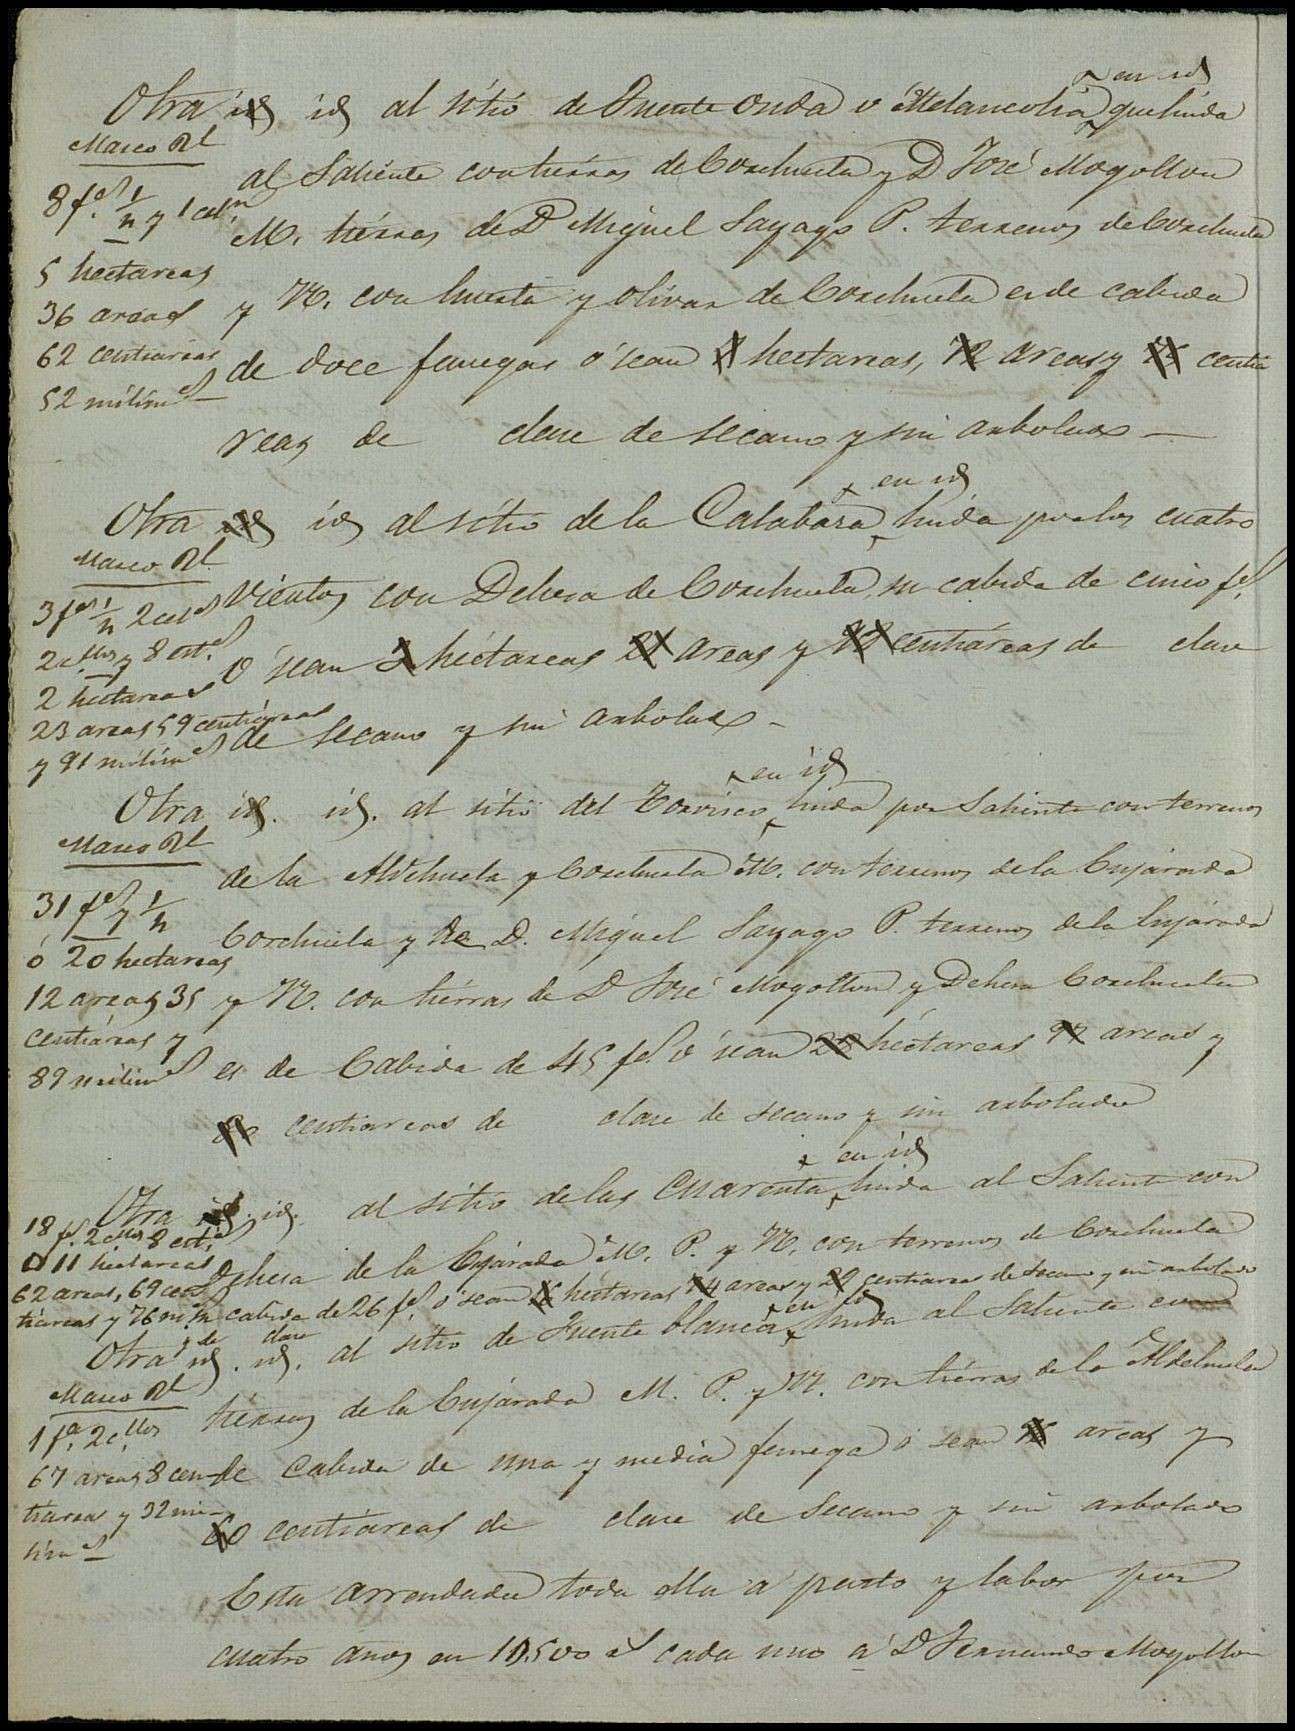 en id
Otra id id al sitio de Fuente Onda o Melancolia que linda
Marco Rl
al Saliente con tierras de Corchuela y D José Mogollon
8 fs. 1/2 y 1 celn
M. tierras de D Miguel Sayago P. terrenos de Corchuela
5 hectareas
y N. con huerta y olivar de Corchuela es de cabida
36 areas
62 centiareas
de doce fanegas ó sean hectareas, 72 areas y centia
52 milims
reas de clase de secano y sin arbolado —
en id
Otra id id al sitio de la Calabaza linda por los cuatro
Marco Rl
vientos con Dehesa de Corchuela, su cabida de cinco fs.
3 fs 1/2 2 cels
2 cllos y 8 ests.
ó sean hectareas 21 areas y centiáreas de clase
2 hectareas
23 areas 59 centiáreas
de secano y sin arbolado -
y 91 milims
en id
Otra id. id. al sitio del Torvisco linda por Saliente con terrenos
Marco Rl
de la Aldehuela y Corchuela M. con terrenos de la Cujárada
31 fs y 1/2
Corchuela y de D. Miguel Sayago P. terrenos de la Cujárada
ó 20 hectareas
12 areas 35
y N. con tierras de D José Mogollon y Dehesa Corchuela
centiáreas y
es de Cabida de 45 fs ó sean 28 héctareas 97 areas y
89 milims
80 centiareas de clase de secano y sin arbolado
en id
Otra id. id. al sitio de las Cuarenta linda al Saliente con
18 fs. 2 cllos 8 ests
ó 11 hectareas
Dehesa de la Cujárada M. P. y N. con terrenos de Corchuela
62 areas, 69 cen
tiáreas y 76 mi
su cabida de 26 fs. ó sean hectáreas 74 areas y 29 centiareas de secano y sin arbolado
y de clase
en id
Otra id. id. al sitio de Fuente blanca linda al Saliente con
Marco Rl
tierras de la Cujárada M. P. y N. con tierras de la Aldehuela
1 fa. 2 cllos
67 areas 8 cen-
de Cabida de una y media fanega ó sean areas y
tiareas y 32 mi-
60 centiáreas de clase de Secano y sin arbolado
lims
Esta arrendada toda ella á pasto y labor por
cuatro años en 10.500 rs cada uno á D Fernando Mogollon